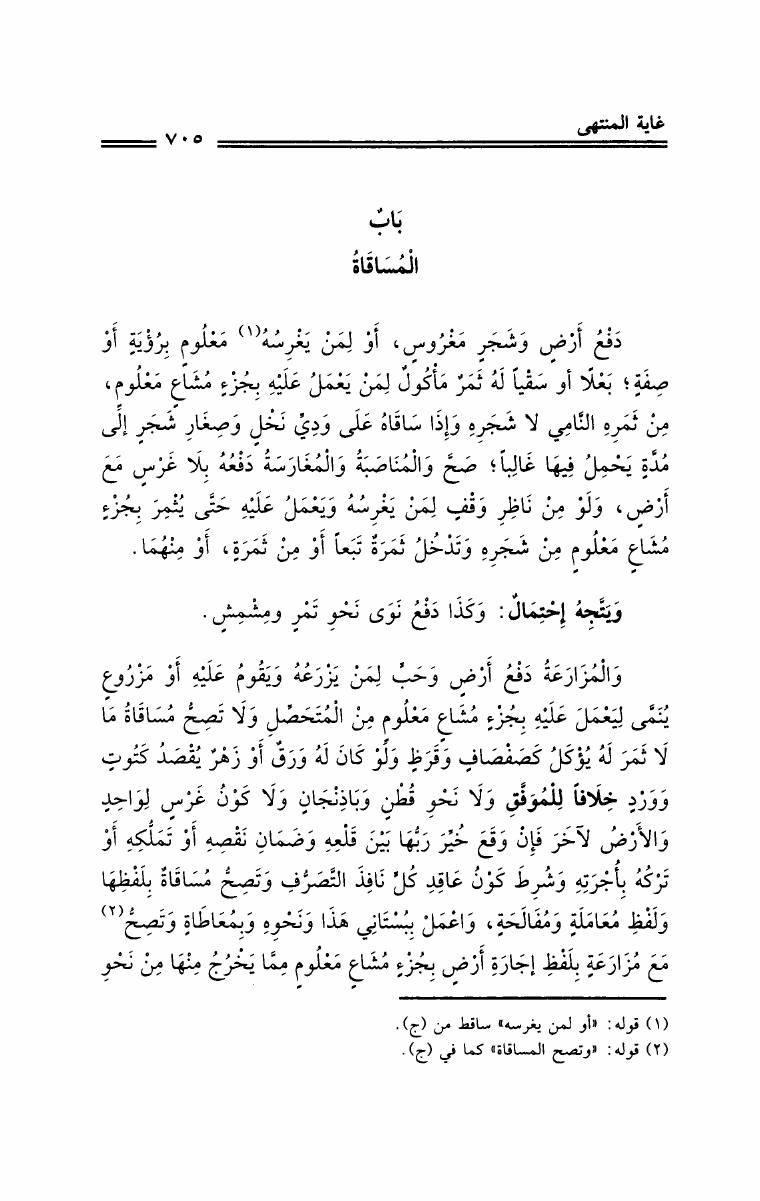 غاية المنتهى
٧٠٥
بَابٌ
الْمُسَاقَاةُ
دَفْعُ أَرْضٍ وَشَجَرٍ مَغْرُوسٍ، أَوْ لِمَنْ يَغْرِسُهُ(١) مَعْلُومٍ بِرُؤْيَةٍ أَوْ
صِفَةٍ؛ بَعْلًا أو سَقْياً لَهُ ثَمَرٌ مَأْكُولٌ لِمَنْ يَعْمَلُ عَلَيْهِ بِجُزْءٍ مُشَاعٍ مَعْلُومٍ،
مِنْ ثَمَرِهِ النَّامِي لا شَجَرِهِ وَإِذَا سَاقَاهُ عَلَى وَدِيِّ نَخْلٍ وَصِغَارِ شَجَرٍ إلَى
مُدَّةٍ يَحْمِلُ فِيهَا غَالِباً؛ صَحَّ وَالْمُنَاصَبَةُ وَالْمُغَارَسَةُ دَفْعُهُ بِلَا غَرْسٍ مَعَ
أَرْضٍ، وَلَوْ مِنْ نَاظِرِ وَقْفٍ لِمَنْ يَغْرِسُهُ وَيَعْمَلُ عَلَيْهِ حَتَّى يُثْمِرَ بِجُزْءٍ
مُشَاعٍ مَعْلُومٍ مِنْ شَجَرِهِ وَتَدْخُلُ ثَمَرَةٌ تَبَعاً أَوْ مِنْ ثَمَرَةٍ، أَوْ مِنْهُمَا.
وَيَتَّجِهُ إِحْتِمَالٌ: وَكَذَا دَفْعُ نَوَى نَحْوِ تَمْرٍ ومِشْمِشٍ.
وَالْمُزَارَعَةُ دَفْعُ أَرْضٍ وَحَبٍّ لِمَنْ يَزْرَعُهُ وَيَقُومُ عَلَيْهِ أَوْ مَزْرُوعٍ
يُنَمَّى لِيَعْمَلَ عَلَيْهِ بِجُزْءٍ مُشَاعٍ مَعْلُومٍ مِنْ الْمُتَحَصِّلِ وَلَا تَصِحُّ مُسَاقَاةُ مَا
لَا ثَمَرَ لَهُ يُؤْكَلُ كَصَفْصَافٍ وَقَرَظٍ وَلَوْ كَانَ لَهُ وَرَقٌ أَوْ زَهْرٌ يُقْصَدُ كَتُوتٍ
وَوَرْدٍ خِلَافاً لِلْمُوَفَّقِ وَلَا نَحْوِ قُطْنٍ وَبَاذِنْجَانٍ وَلَا كَوْنُ غَرْسٍ لِوَاحِدٍ
وَالأَرْضُ لآخَرَ فَإِنْ وَقَعَ خُيِّرَ رَبُّهَا بَيْنَ قَلْعِهِ وَضَمَانِ نَقْصِهِ أَوْ تَمَلُّكِهِ أَوْ
تَرْكُهُ بِأُجْرَتِهِ وَشُرِطَ كَوْنُ عَاقِدٍ كُلٍّ نَافِذَ التَّصَرُّفِ وَتَصِحُّ مُسَاقَاةٌ بِلَفْظِهَا
وَلَفْظِ مُعَامَلَةٍ وَمُفَالَحَةٍ، وَاعْمَلْ بِبُسْتَانِي هَذَا وَنَحْوِهِ وَبِمُعَاطَاةٍ وَتَصِحُّ(٢)
مَعَ مُزَارَعَةٍ بِلَفْظِ إجَارَةِ أَرْضٍ بِجُزْءٍ مُشَاعٍ مَعْلُومٍ مِمَّا يَخْرُجُ مِنْهَا مِنْ نَحْوِ
(١) قوله: «أو لمن يغرسه» ساقط من (ج).
(٢) قوله: «وتصح المساقاة» كما في (ج).